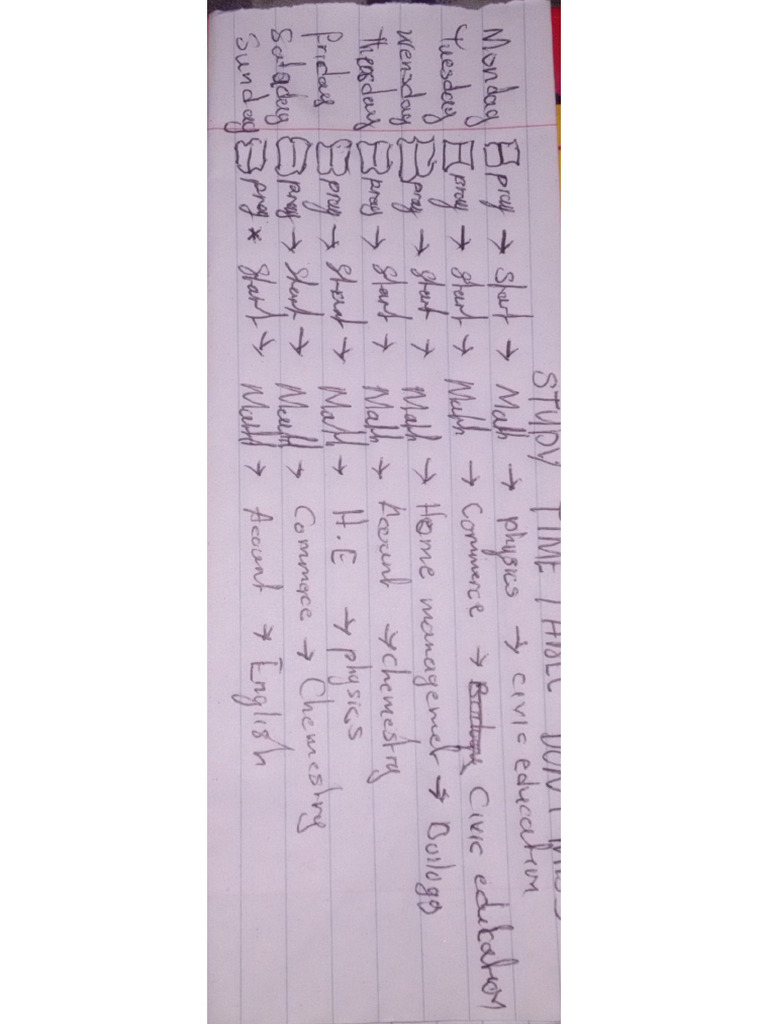 STUDY TIME TABLE DON'T MISS
Monday pray → Start → Math → physics → civic education
Tuesday pray → start → Math → Commerce → Civic edukation
Wensday pray → start → Math → Home managemet → Builogo
Thersday pray → start → Math → Account → chemestry
Friday pray → start → Math → H.E → physics
Sataday pray → Start → Math → Commace → Chemestry
Sunday pray → Start → Math → Acount → English